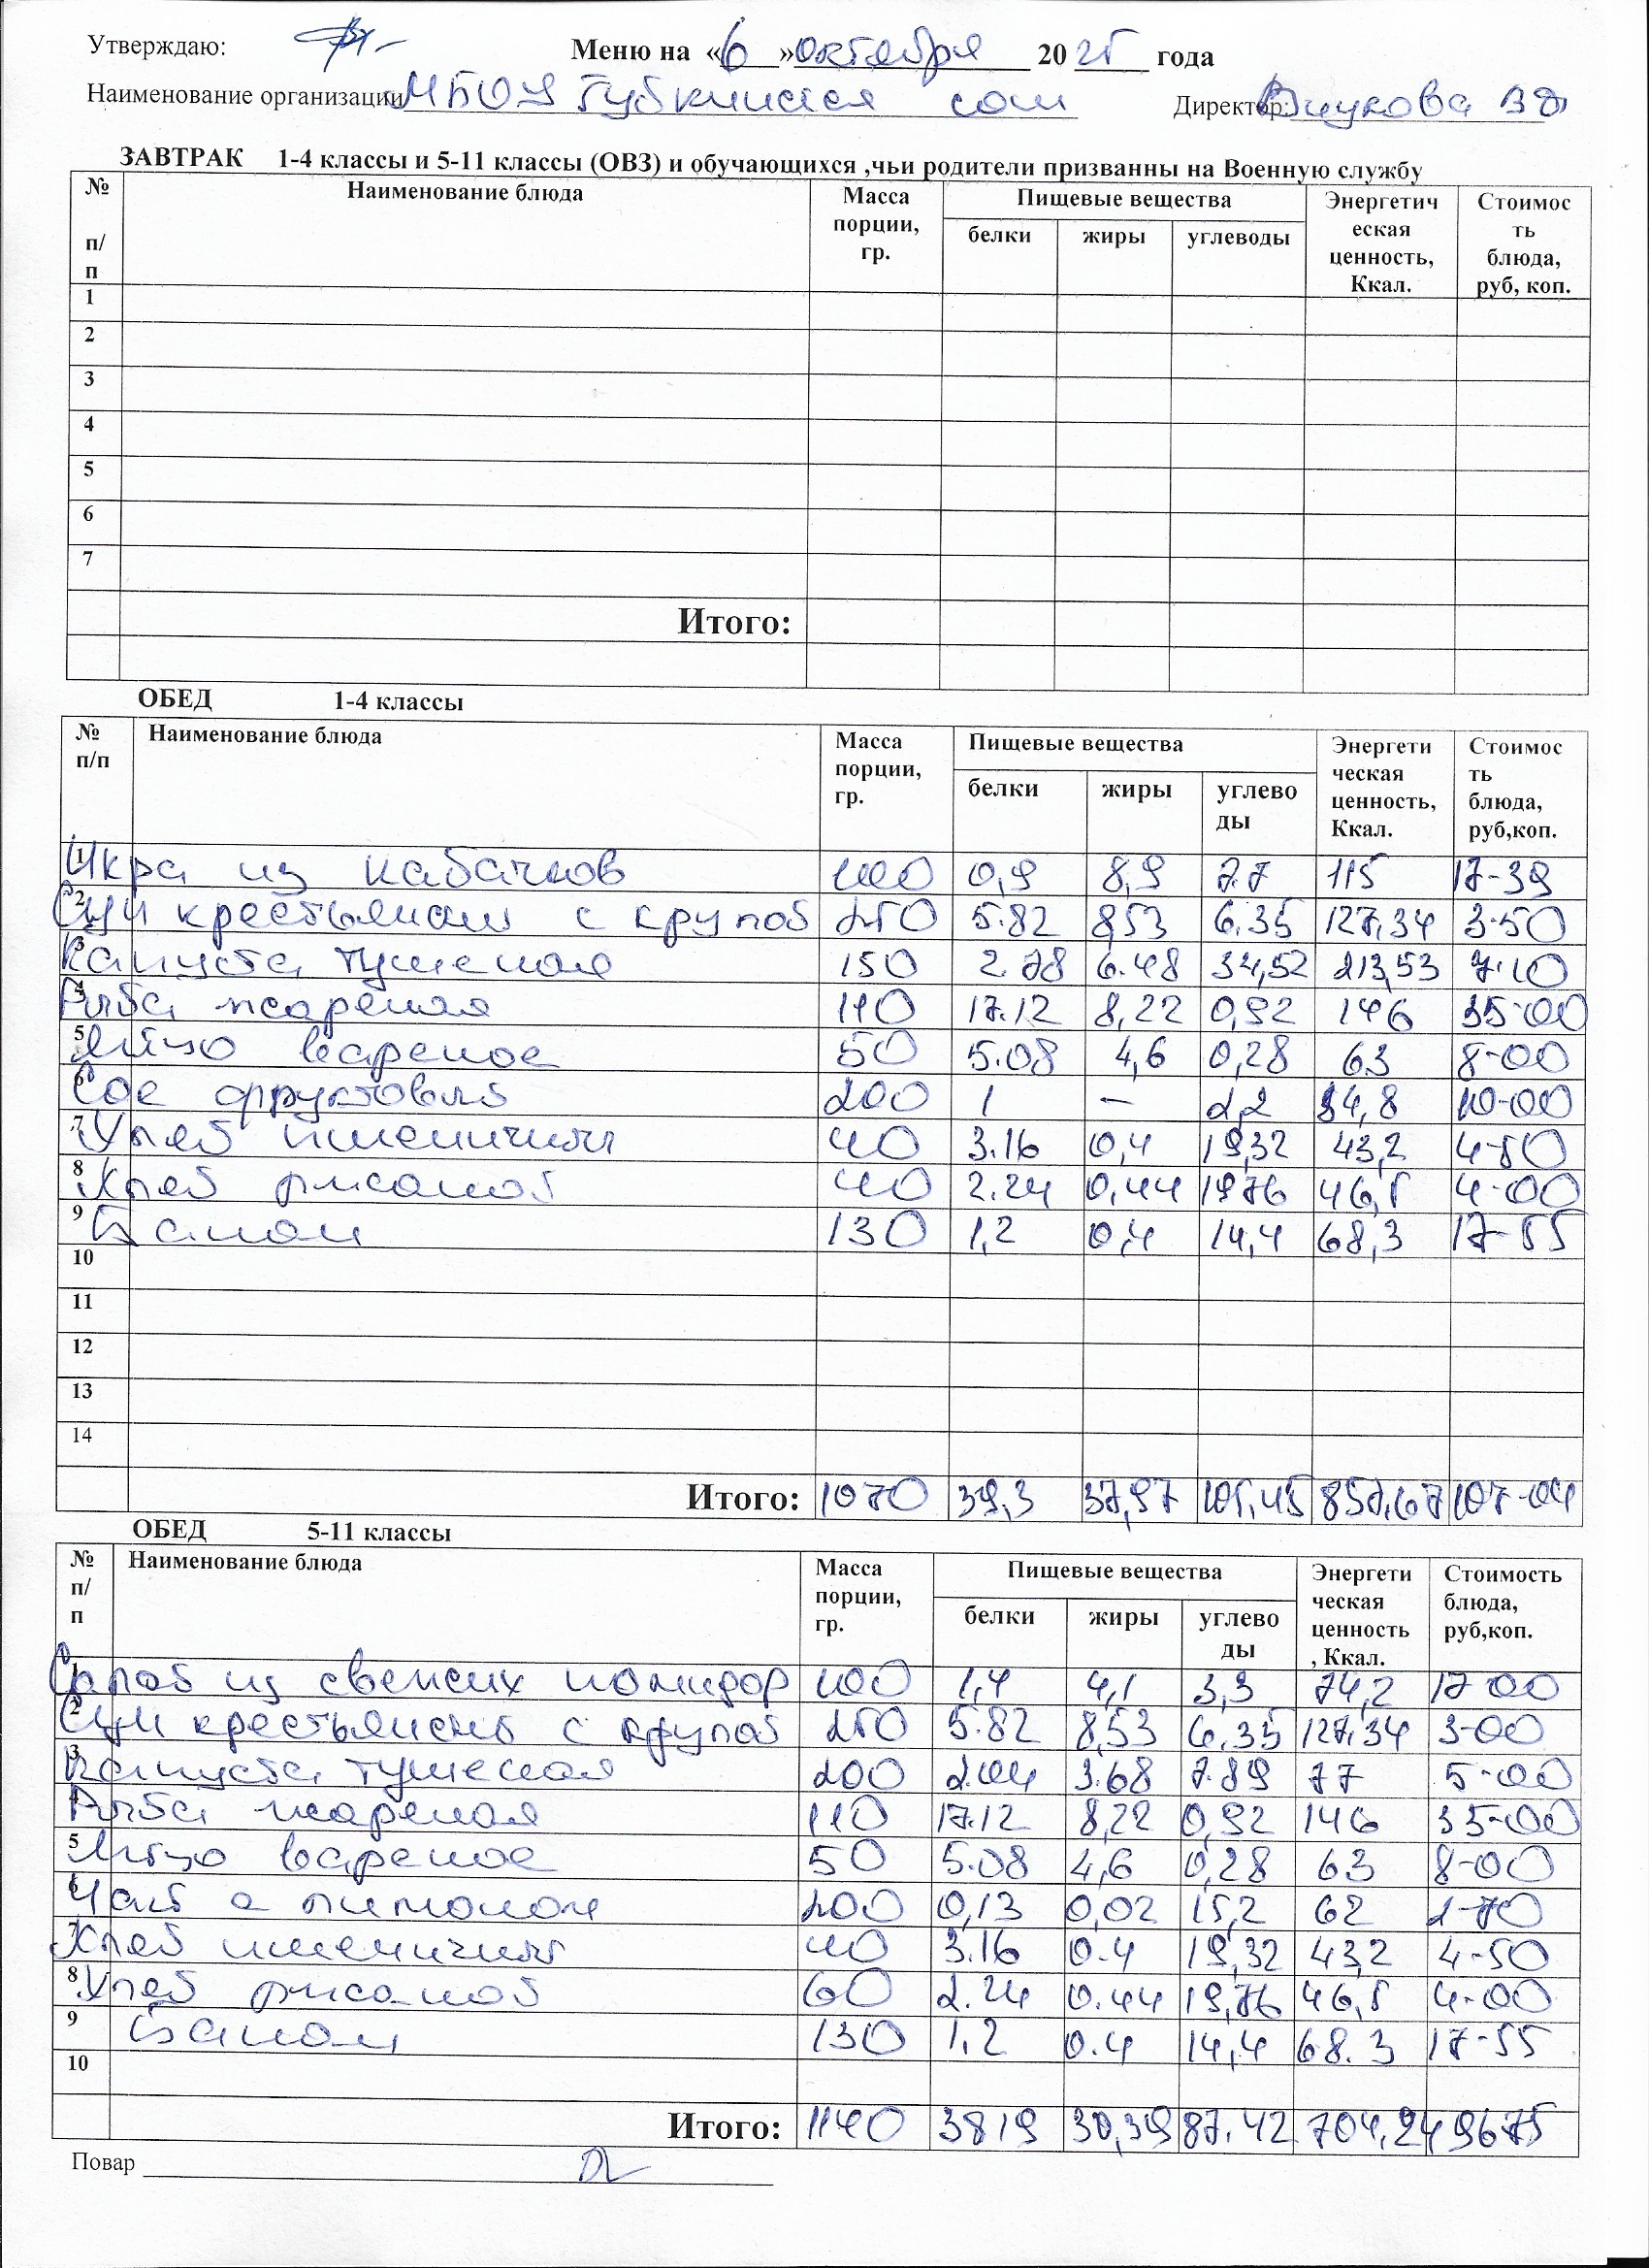 Утверждаю:
Меню на «6» октября 2025 года
Наименование организации МБОУ Губкинская сош Директор: Внукова В
ЗАВТРАК 1-4 классы и 5-11 классы (ОВЗ) и обучающихся ,чьи родители призванны на Военную службу
№ п/п Наименование блюда Масса порции, гр. Пищевые вещества Энергетическая ценность, Ккал. Стоимость блюда, руб, коп.
белки жиры углеводы
1
2
3
4
5
6
7
Итого:
ОБЕД 1-4 классы
№ п/п Наименование блюда Масса порции, гр. Пищевые вещества Энергетическая ценность, Ккал. Стоимость блюда, руб,коп.
белки жиры углеводы
1 Икра из кабачков 100 0,9 8,9 7.7 115 17-39
2 Щи крестьянские с крупой 250 5.82 8,53 6.35 127,34 3-50
3 Капуста тушеная 150 2.78 6.48 34,52 213,53 7-10
4 Рыба жареная 110 17.12 8,22 0,92 146 35-00
5 Яйцо вареное 50 5.08 4,6 0,28 63 8-00
6 Сок фруктовый 200 1 – 2,2 34,8 10-00
7 Хлеб пшеничный 40 3.16 0,4 19,32 43,2 4-50
8 Хлеб ржаной 40 2.24 0,44 19,76 46,5 4-00
9 Банан 130 1,2 0,4 14,4 68,3 17-55
10
11
12
13
14
Итого: 1070 39,3 37,97 105,45 857,67 107-04
ОБЕД 5-11 классы
№ п/п Наименование блюда Масса порции, гр. Пищевые вещества Энергетическая ценность, Ккал. Стоимость блюда, руб,коп.
белки жиры углеводы
1 Салат из свежих помидор 100 1,4 4,1 3,3 74,2 17-00
2 Щи крестьянские с крупой 250 5.82 8,53 6,35 127.34 3-00
3 Капуста тушеная 200 2.04 3.68 7.89 77 5-00
4 Рыба жареная 110 17.12 8,22 0,92 146 35-00
5 Яйцо вареное 50 5.08 4,6 0,28 63 8-00
6 Чай с лимоном 200 0,13 0,02 15,2 62 2-70
7 Хлеб пшеничный 40 3.16 0.4 19,32 43,2 4-50
8 Хлеб ржаной 60 2.24 0.44 19,76 46,5 4-00
9 Банан 130 1,2 0.4 14,4 68.3 17-55
10
Итого: 1140 3819 30,39 87.42 704,24 9675
Повар